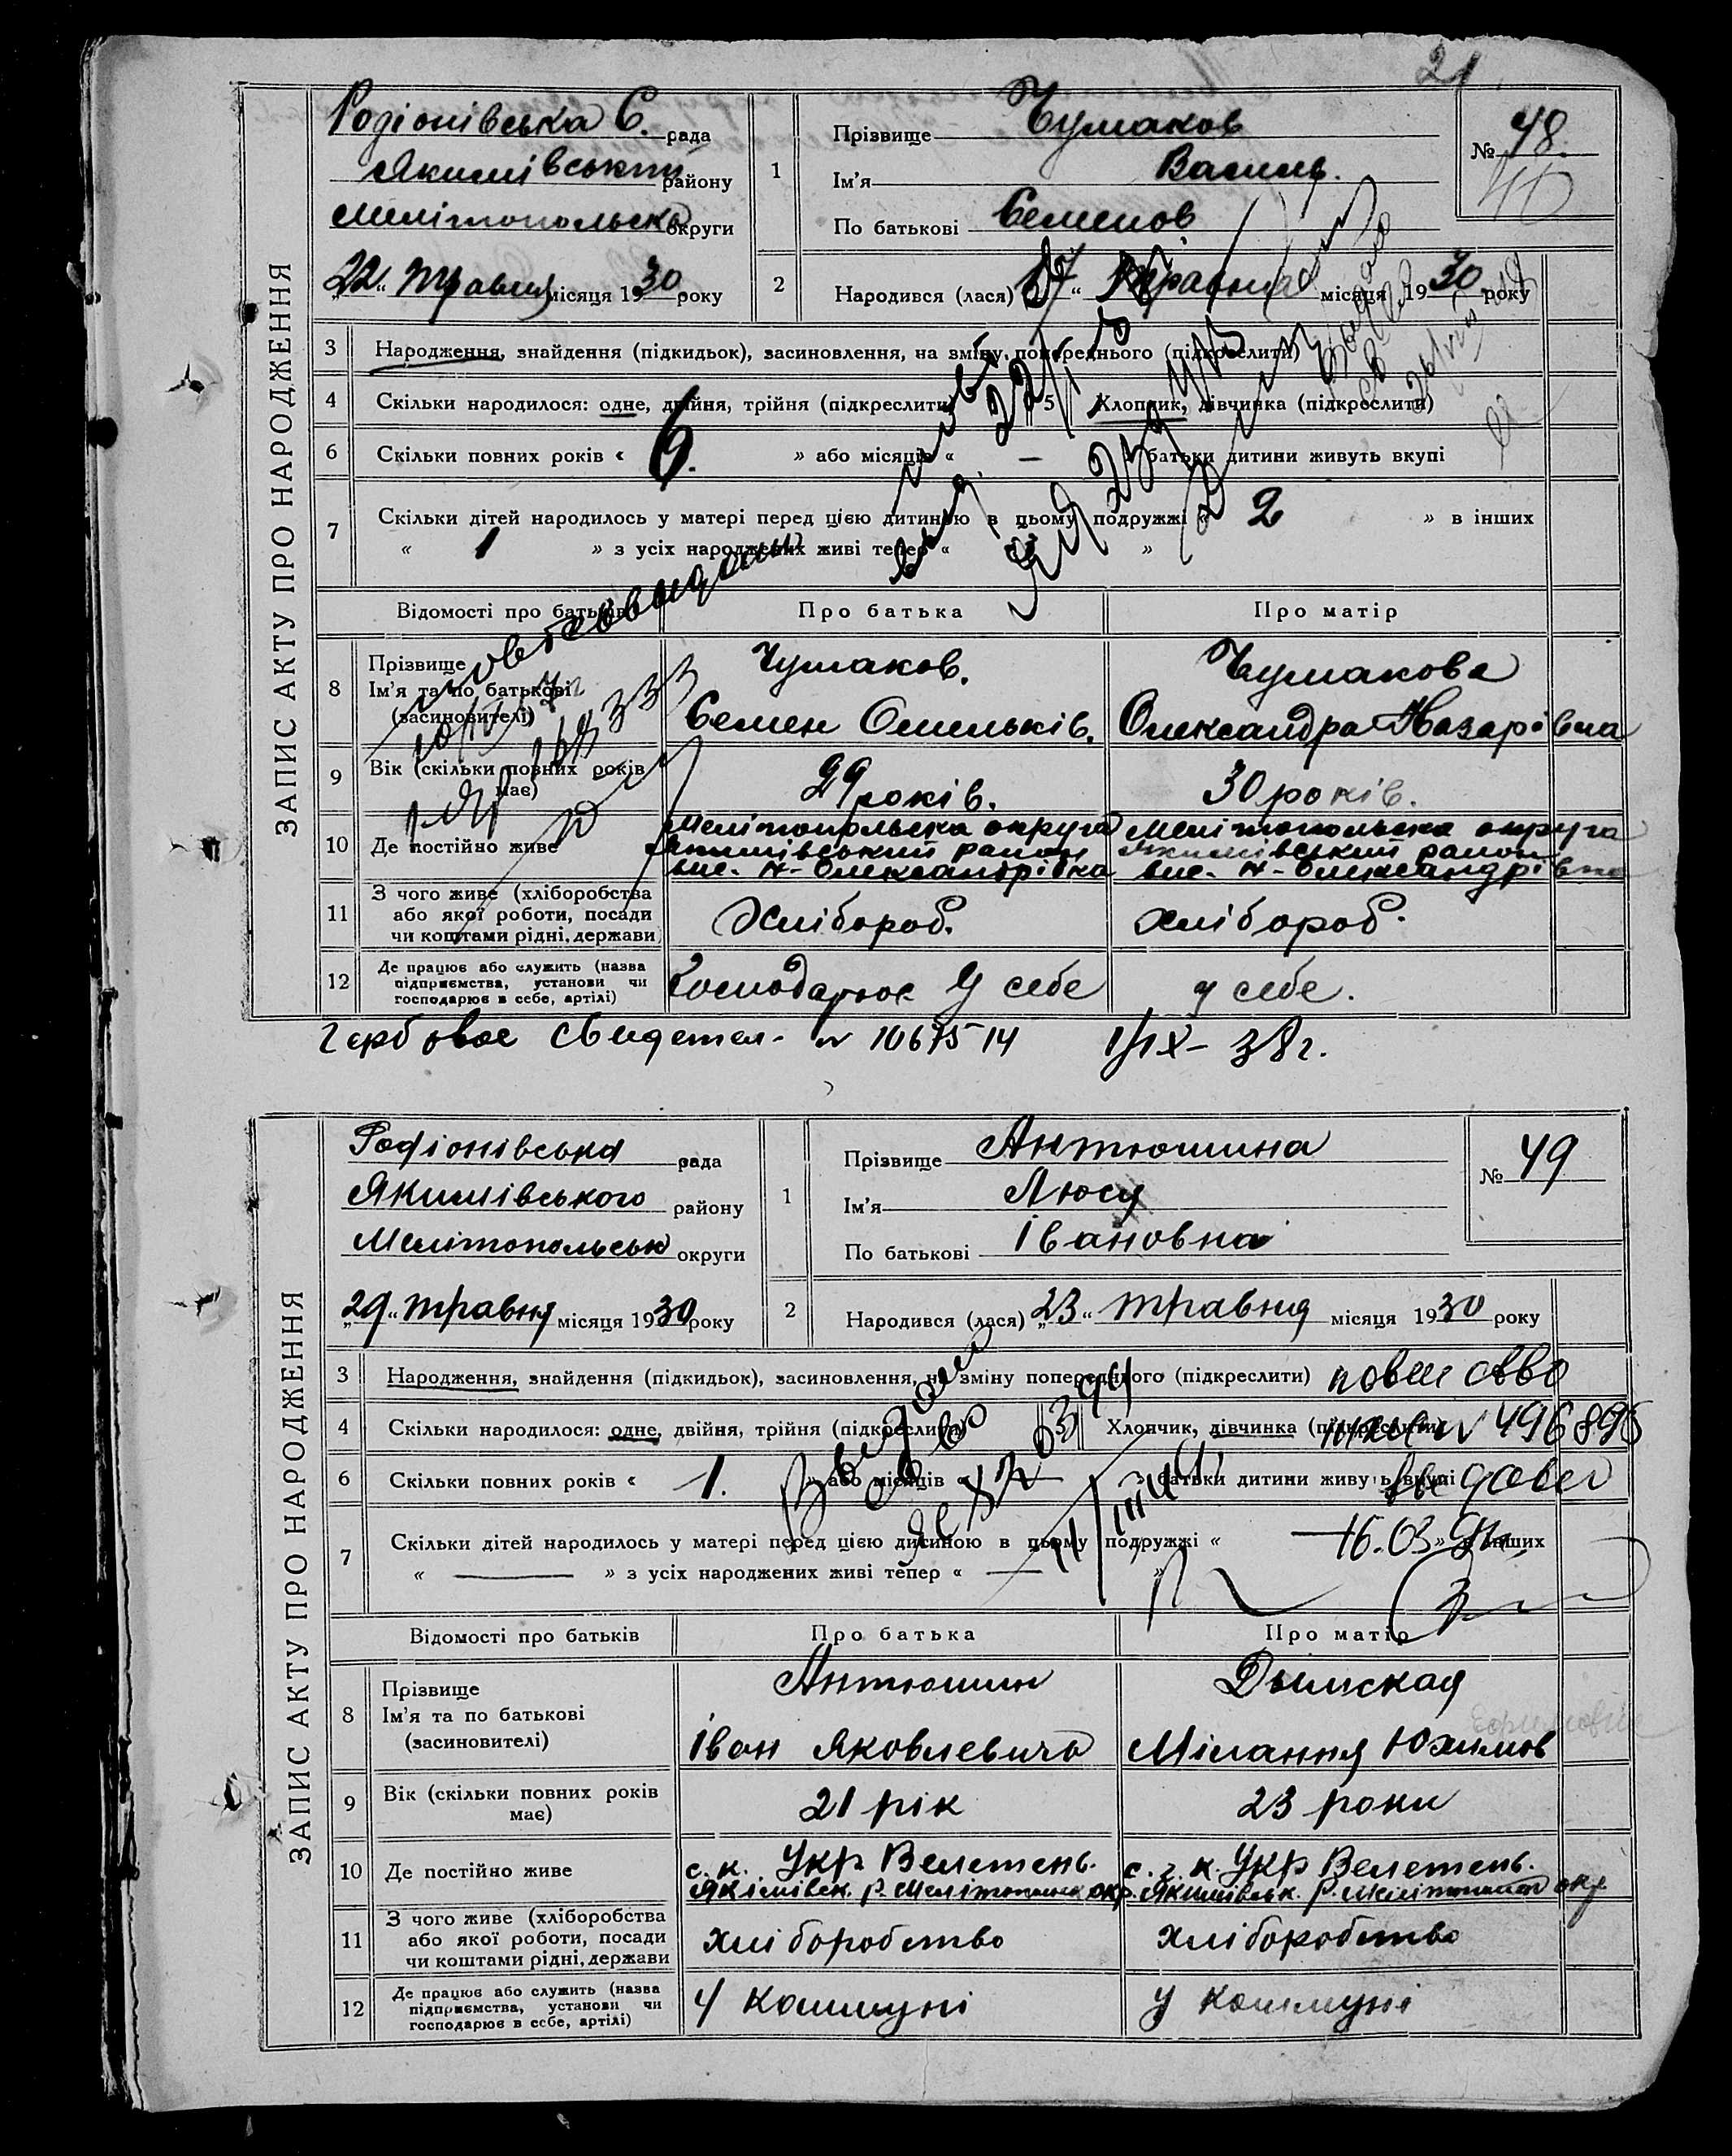 21
Родіонівська С. рада
Якимівський району
Мелітопольськ округи
„22“ травня місяця 1930 року
1
Прізвище Чумаков
Ім'я Василь.
По батькові Семенов
№ 48.
40
2
Народився (лася) „17“ травня місяця 1930 року
ЗАПИС АКТУ ПРО НАРОДЖЕННЯ
3 Народження, знайдення (підкидьок), засиновлення, на зміну попереднього (підкреслити)
4 Скільки народилося: одне, двійня, трійня (підкреслити) 5 Хлопчик, дівчинка (підкреслити)
6 Скільки повних років « 6. » або місяців « — » батьки дитини живуть вкупі
7 Скільки дітей народилось у матері перед цією дитиною в цьому подружжі « 2 » в інших
« 1 » з усіх народжених живі тепер « 3 »
Відомості про батьків Про батька Про матір
8 Прізвище
Ім'я та по батькові
(засиновителі)
Чумаков. Чумакова
Семен Омельків. Олександра Назарівна
9 Вік (скільки повних років має) 29 років. 30 років.
10 Де постійно живе
Мелітопольська округа Мелітопольська округа
Якимівський район Якимівський район
вис. Н-Олександрівка вис. Н-Олександрівка
11 З чого живе (хліборобства
або якої роботи, посади
чи коштами рідні, держави
Хлібороб. хлібороб.
12 Де працює або служить (назва
підприємства, установи чи
господарює в себе, артілі)
Господарює у себе у себе.
гербовое свидетел- N 1067514 1/IX-38г.
Родіонівська рада
Якимівського району
Мелітопольськ округи
„29“ травня місяця 1930 року
1
Прізвище Антюшина
Ім'я Люся
По батькові Івановна
№ 49
2
Народився (лася) „23“ травня місяця 1930 року
ЗАПИС АКТУ ПРО НАРОДЖЕННЯ
3 Народження, знайдення (підкидьок), засиновлення, на зміну попереднього (підкреслити)
4 Скільки народилося: одне, двійня, трійня (підкреслити) Хлопчик, дівчинка (підкреслити)
N 496896
6 Скільки повних років « 1. » або місяців « — » батьки дитини живуть вкупі
7 Скільки дітей народилось у матері перед цією дитиною в цьому подружжі « — » в інших
« — » з усіх народжених живі тепер « — »
16.03
Відомості про батьків Про батька Про матір
8 Прізвище
Ім'я та по батькові
(засиновителі)
Антюшин Дымская
Іван Яковлевич Мілання Юхимов
9 Вік (скільки повних років має) 21 рік 23 роки
10 Де постійно живе
с. к. Укр Велетень. с. г. к. Укр Велетень.
Якімівск. р. Мелітопольск окр. Якимівськ. р. Мелітопольск окр
11 З чого живе (хліборобства
або якої роботи, посади
чи коштами рідні, держави
хліборобство хліборобство
12 Де працює або служить (назва
підприємства, установи чи
господарює в себе, артілі)
У коммуні у коммуні